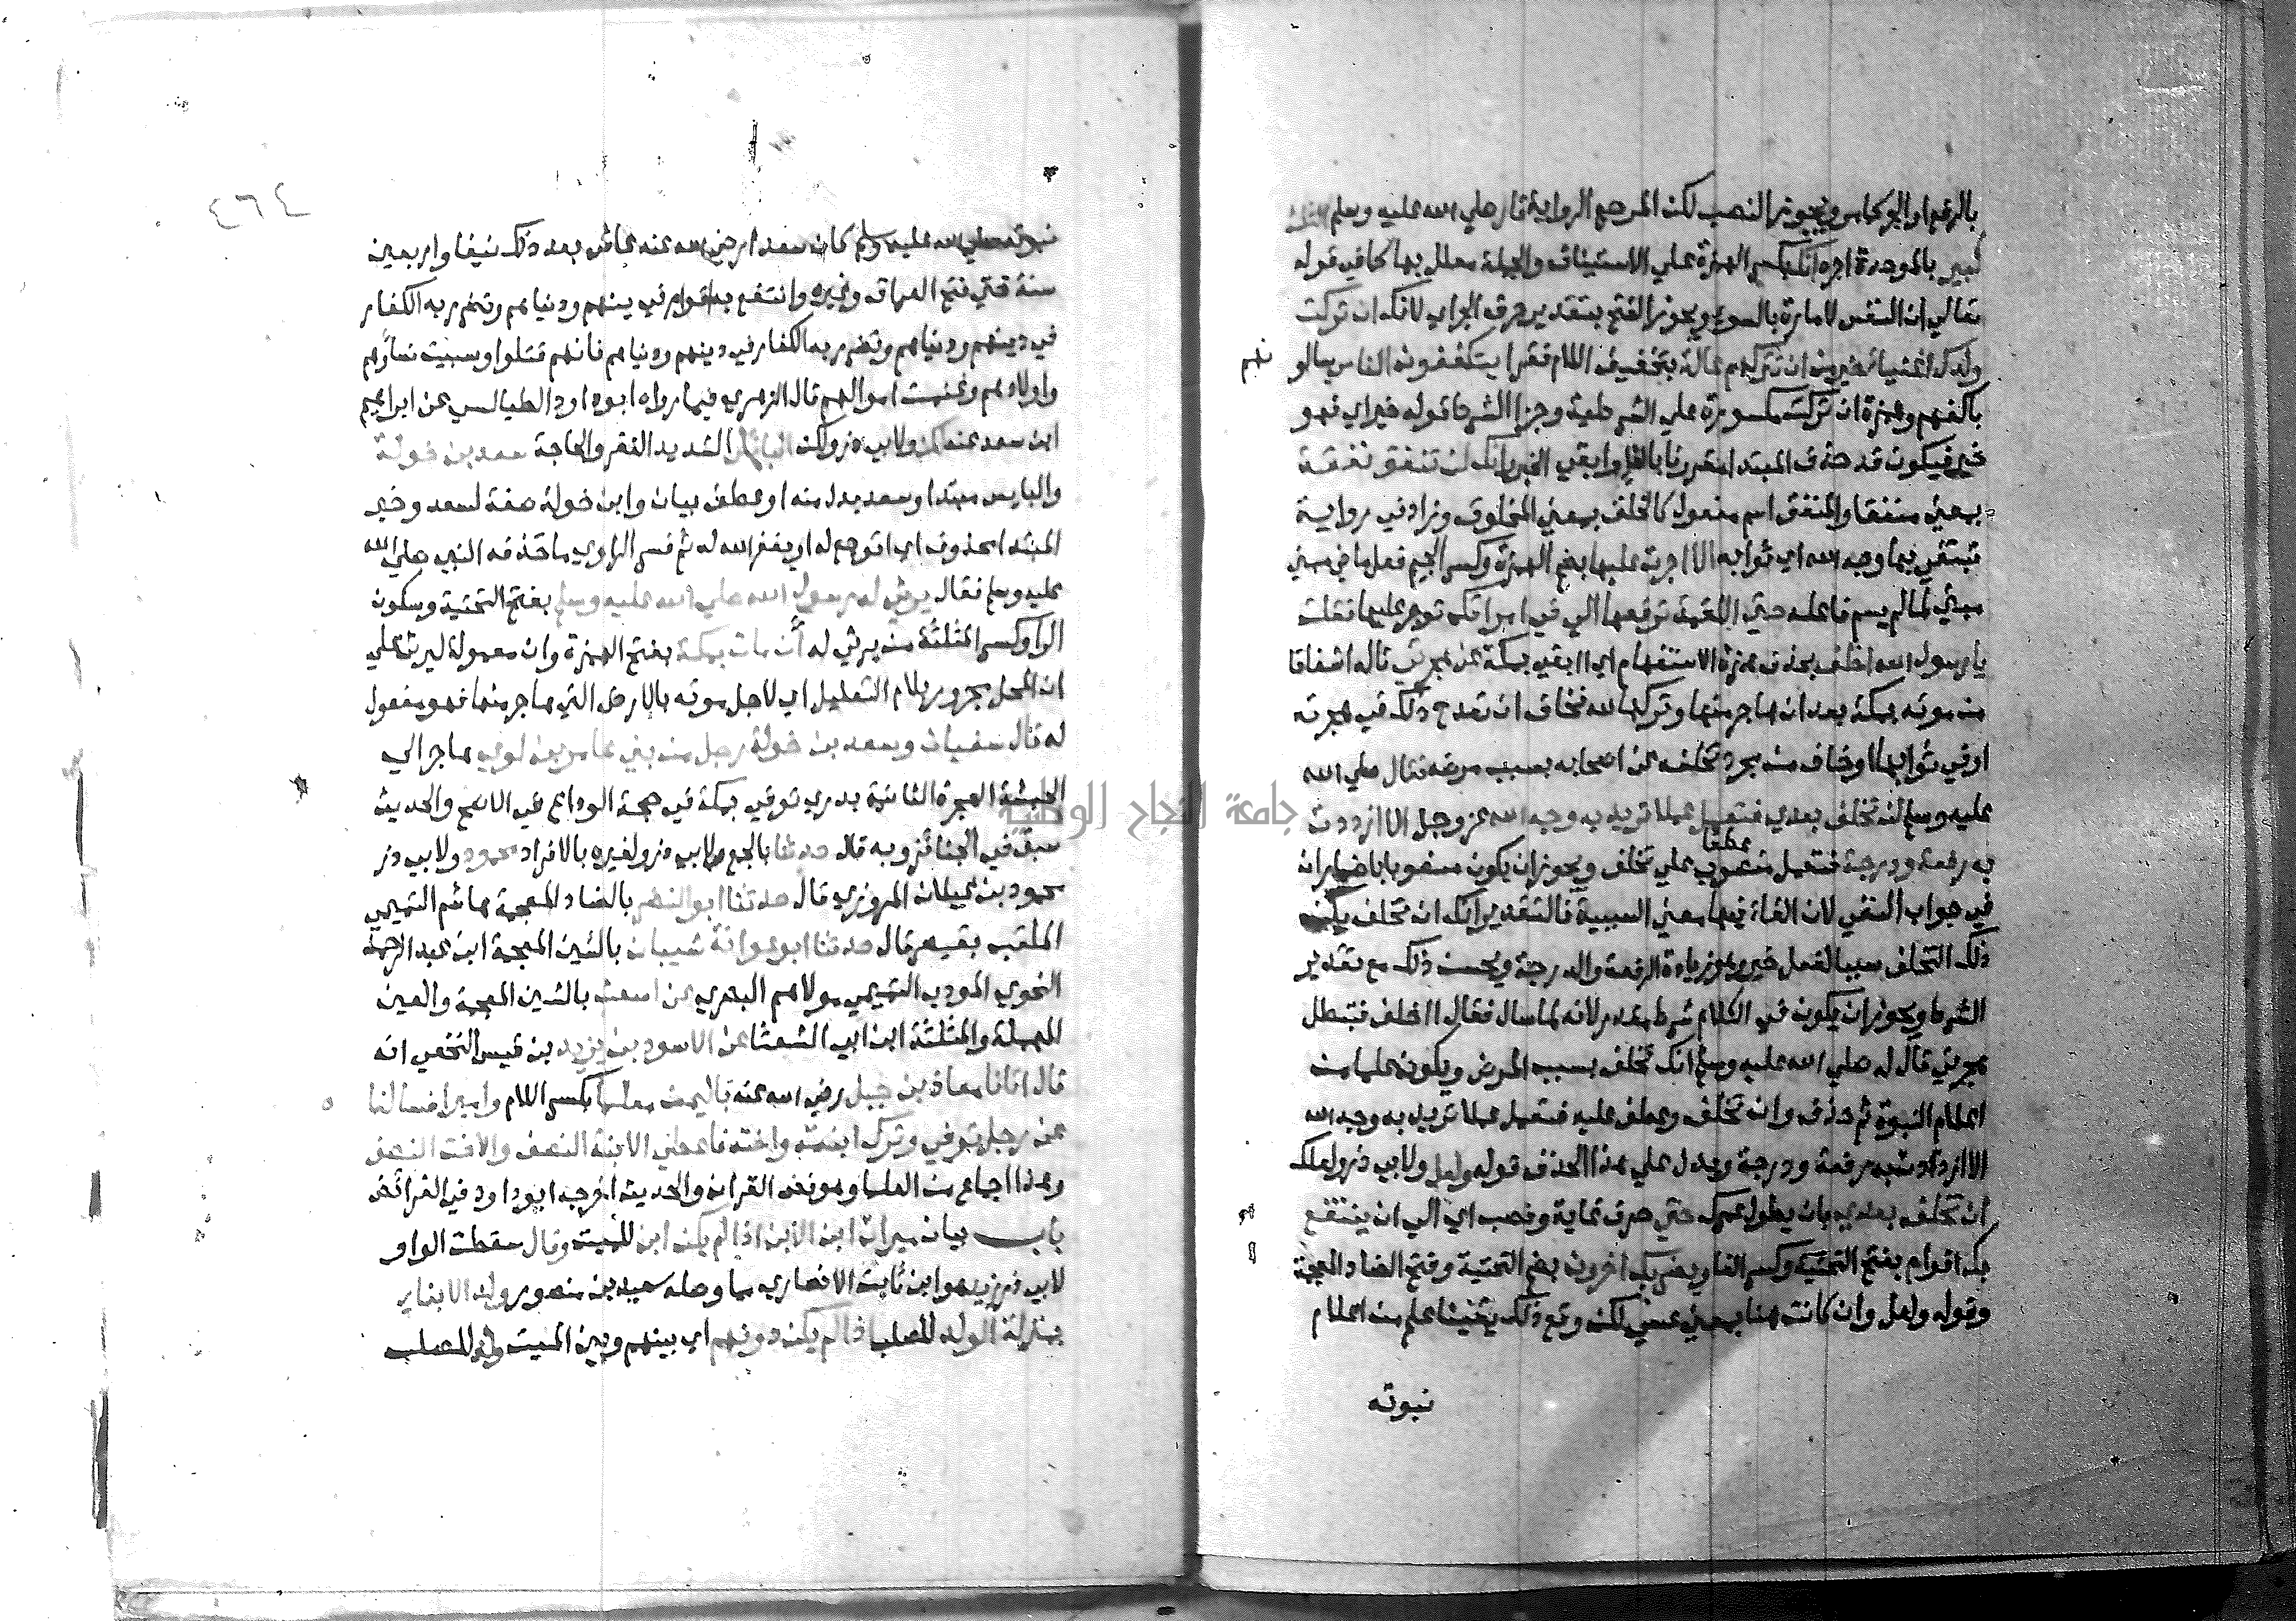 بالرفع او الجر كما مر ويجوز النصب لكن المرجح الرواية قال صلي الله عليه وسلم الثلث
كبير بالموحدة اجره انك بكسر الهمزة علي الاستيناف والجملة معلل بها كما في قوله
تعالي ان النفس لامارة بالسوء ويجوز الفتح بتقدير حرف الجر اي لانك ان تركت
ولدك اغنيا خير من ان تتركهم عالة بتخفيف اللام فقرا يتكففون الناس يسالو
نهم
باكفهم وهمزة ان تركت مكسورة علي الشرطية وجزا الشرط قوله خير اي فهو
خير فيكون قد حذف المبتدا مقرونا بالفا وابقي الخبر وانك لن تنفق نفقة
بمعني منفقا والمنفق اسم مفعول كالخلق بمعني المخلوق وزاد في رواية
تبتغي بها وجه الله اي ثوابه الا اجرت عليها بضم الهمزة وكسر الجيم فعل ماضي
مبني لما لم يسم فاعله حتي اللقمة ترفعها الي في امراتك توجر عليها فقلت
يا رسول الله اخلف بحذف همزة الاستفهام اي اابقي بمكة عن هجرتي قاله اشفاقا
من موته بمكة بعد ان هاجر منها وتركها لله فخاف ان تقدح ذلك في هجرته
او في ثوابها او خاف من مجرد تخلفه عن اصحابه بسبب مرضه فقال صلي الله
عليه وسلم لن تخلف بعدي فتعمل عملا تريد به وجه الله عز وجل الا ازددت
به رفعة ودرجة فتعمل منصوب عطفا علي تخلف ويجوز ان يكون منصوبا باضمار ان
في جواب النفي لان الفاء فيها معني السببية فالتقدير انك ان تخلف يكن
ذلك التخلف سببا لفعل خير هو زيادة الرفعة والدرجة ويحسن ذلك مع تقدير
الشرط ويجوز ان يكون في الكلام شرط مقدر لانه لما سال فقال ااخلف فتبطل
هجرتي قال له صلي الله عليه وسلم انك تخلف بسبب المرض ويكون علما من
اعلام النبوة ثم حذف وان تخلف وعطف عليه فتعمل عملا تريد به وجه الله
الا ازددت به رفعة ودرجة ويدل علي هذا الحذف قوله ولعل ولابي ذر ولعلك
ان تخلف بعدي بان يطول عمرك حتي حرف غاية ونصب اي الي ان ينتفع
بك اقوام بفتح التحتية وكسر الفا ويضر بك اخرون بضم التحتية وفتح الضاد المعجمة
وقوله ولعل وان كانت هنا بمعني عسي لكن وقع ذلك يقينا علم من اعلام
نبوته
٤٦٤
نبوته صلي الله عليه وسلم كان سعدا رضي الله عنه عاش بعد ذلك نيفا واربعين
سنة حتي فتح العراق وغيره وانتفع به اقوام في دينهم ودنياهم وتضرر به الكفار
في دينهم ودنياهم وتضرر به الكفار في دينهم ودنياهم فانهم قتلوا وسبيت نساؤهم
واولادهم وغنمت اموالهم قال الزهري فيما رواه ابو داود الطيالسي عن ابراهيم
ابن سعد عنه لكن ولابي ذر ولكن البائس الشديد الفقر والحاجة سعد بن خولة
والبايس مبتدا وسعد بدل منه او عطف بيان وابن خولة صفة لسعد وخبر
المبتدا محذوف اي اتوجع له او يغفر الله له ثم فسر الراوي ما حذفه النبي صلي الله
عليه وسلم فقال يرثي له رسول الله صلي الله عليه وسلم بفتح التحتية وسكون
الرا وكسر المثلثة من يرثي له أن مات بمكة بفتح الهمزة وان معمولة ليرثي علي
ان المحل مجرور بلام التعليل اي لاجل موته بالارض التي هاجر منها فهو مفعول
له قال سفيان وسعد بن خولة رجل من بني عامر بن لوي هاجر الي
الحبشة الهجرة الثانية بدري توفي بمكة في حجة الوداع في الاصح والحديث
سبق في الجنائز وبه قال حدثنا بالجمع ولابي ذر ولغيره بالافراد محمود ولابي ذر
محمود بن غيلان المروزي قال حدثنا ابو النضر بالضاد المعجمة هاشم التميمي
الملقب بقيصر قال حدثنا ابو عوانة شيبان بالشين المعجمة ابن عبد الرحمن
النحوي المودب التميمي مولاهم البصري عن اشعث بالشين المعجمة والعين
المهملة والمثلثة ابن ابي الشعثا عن الاسود بن يزيد بن قيس النخعي انه
قال اتانا معاذ بن جبل رضي الله عنه باليمن معلما بكسر اللام واميرا فسالنا
عن رجل توفي وترك ابنته واخته فاعطي الابنة النصف والاخت النصف
وهذا اجماع من العلما وهو نص القران والحديث اخرجه ابو داود في الفرائض
باب بيان ميراث ابن الابن اذا لم يكن ابن للميت وقال سقطت الواو
لابي ذر زيد هو ابن ثابت الانصاري مما وصله سعيد بن منصور ولد الابناء
بمنزلة الولد للصلب اذا لم يكن دونهم اي بينهم وبين الميت ولد للصلب
جامعة النجاح الوطنية